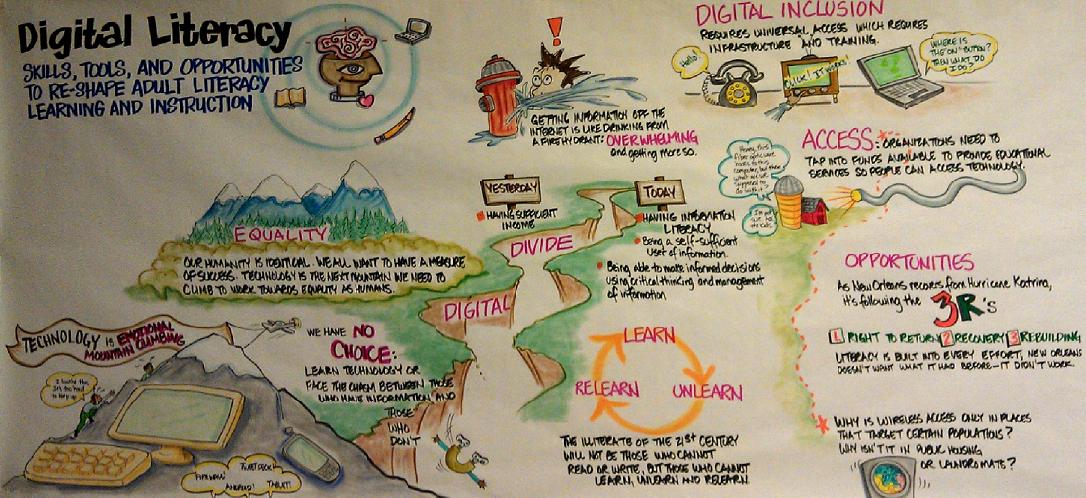 Digital Literacy
SKILLS, TOOLS, AND OPPORTUNITIES
TO RE-SHAPE ADULT LITERACY
LEARNING AND INSTRUCTION
!
GETTING INFORMATION OFF THE
INTERNET IS LIKE DRINKING FROM
A FIRE HYDRANT: OVERWHELMING
and getting more so.
DIGITAL INCLUSION
REQUIRES UNIVERSAL ACCESS WHICH REQUIRES
INFRASTRUCTURE AND TRAINING.
Hello!
CLICK! IT WORKS!
WHERE IS
THE ON "BUTTON"?
THEN WHAT DO
I DO?
ACCESS: ORGANIZATIONS NEED TO
TAP INTO FUNDS AVAILABLE TO PROVIDE EDUCATIONAL
SERVICES SO PEOPLE CAN ACCESS TECHNOLOGY.
Honey, this
fiber optic wire
computer, but
EQUALITY
OUR HUMANITY IS IDENTICAL. WE ALL WANT TO HAVE A MEASURE
OF SUCCESS. TECHNOLOGY IS THE NEXT MOUNTAIN WE NEED TO
CLIMB TO WORK TOWARDS EQUALITY AS HUMANS.
YESTERDAY
HAVING SUFFICIENT
INCOME
TODAY
HAVING INFORMATION
LITERACY
Being a self-sufficient
user of information.
Being able to make informed decisions
using critical thinking and management
of information
DIVIDE
DIGITAL
OPPORTUNITIES
As New Orleans recovers from Hurricane Katrina,
it's following the 3R's
1 RIGHT TO RETURN 2 RECOVERY 3 REBUILDING
LITERACY IS BUILT INTO EVERY EFFORT, NEW ORLEANS
DOESN'T WANT WHAT IT HAD BEFORE—IT DIDN'T WORK.
WHY IS WIRELESS ACCESS ONLY IN PLACES
THAT TARGET CERTAIN POPULATIONS?
WHY ISN'T IT IN PUBLIC HOUSING
OR LAUNDROMATS?
TECHNOLOGY IS EMOTIONAL
MOUNTAIN CLIMBING
WE HAVE NO
CHOICE:
LEARN TECHNOLOGY OR
FACE THE CHASM BETWEEN THOSE
WHO HAVE INFORMATION AND
THOSE
WHO
DON'T
FIREWALL
ANDROID!
TABLET!
LEARN
RELEARN
UNLEARN
THE ILLITERATE OF THE 21st CENTURY
WILL NOT BE THOSE WHO CANNOT
READ OR WRITE, BUT THOSE WHO CANNOT
LEARN, UNLEARN AND RELEARN.